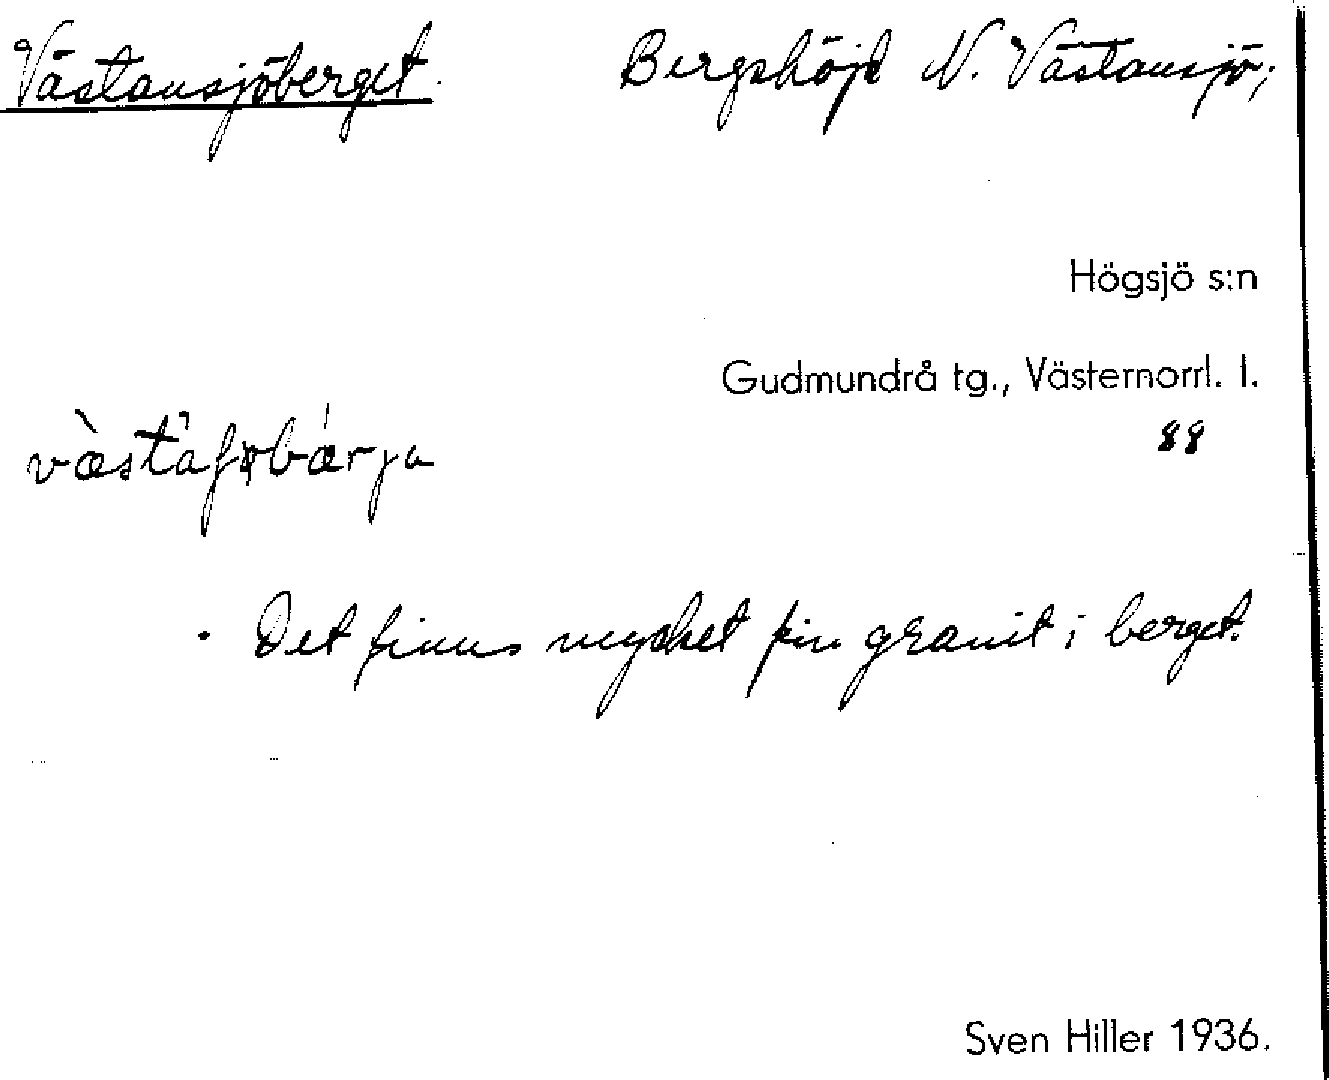 Västansjöberget. Bergshöjd N. Västansjö;
Högsjö s:n
Gudmundrå tg., Västernorrl. l.
88
. Det finns mycket fin granit i berget.
Sven Hiller 1936.